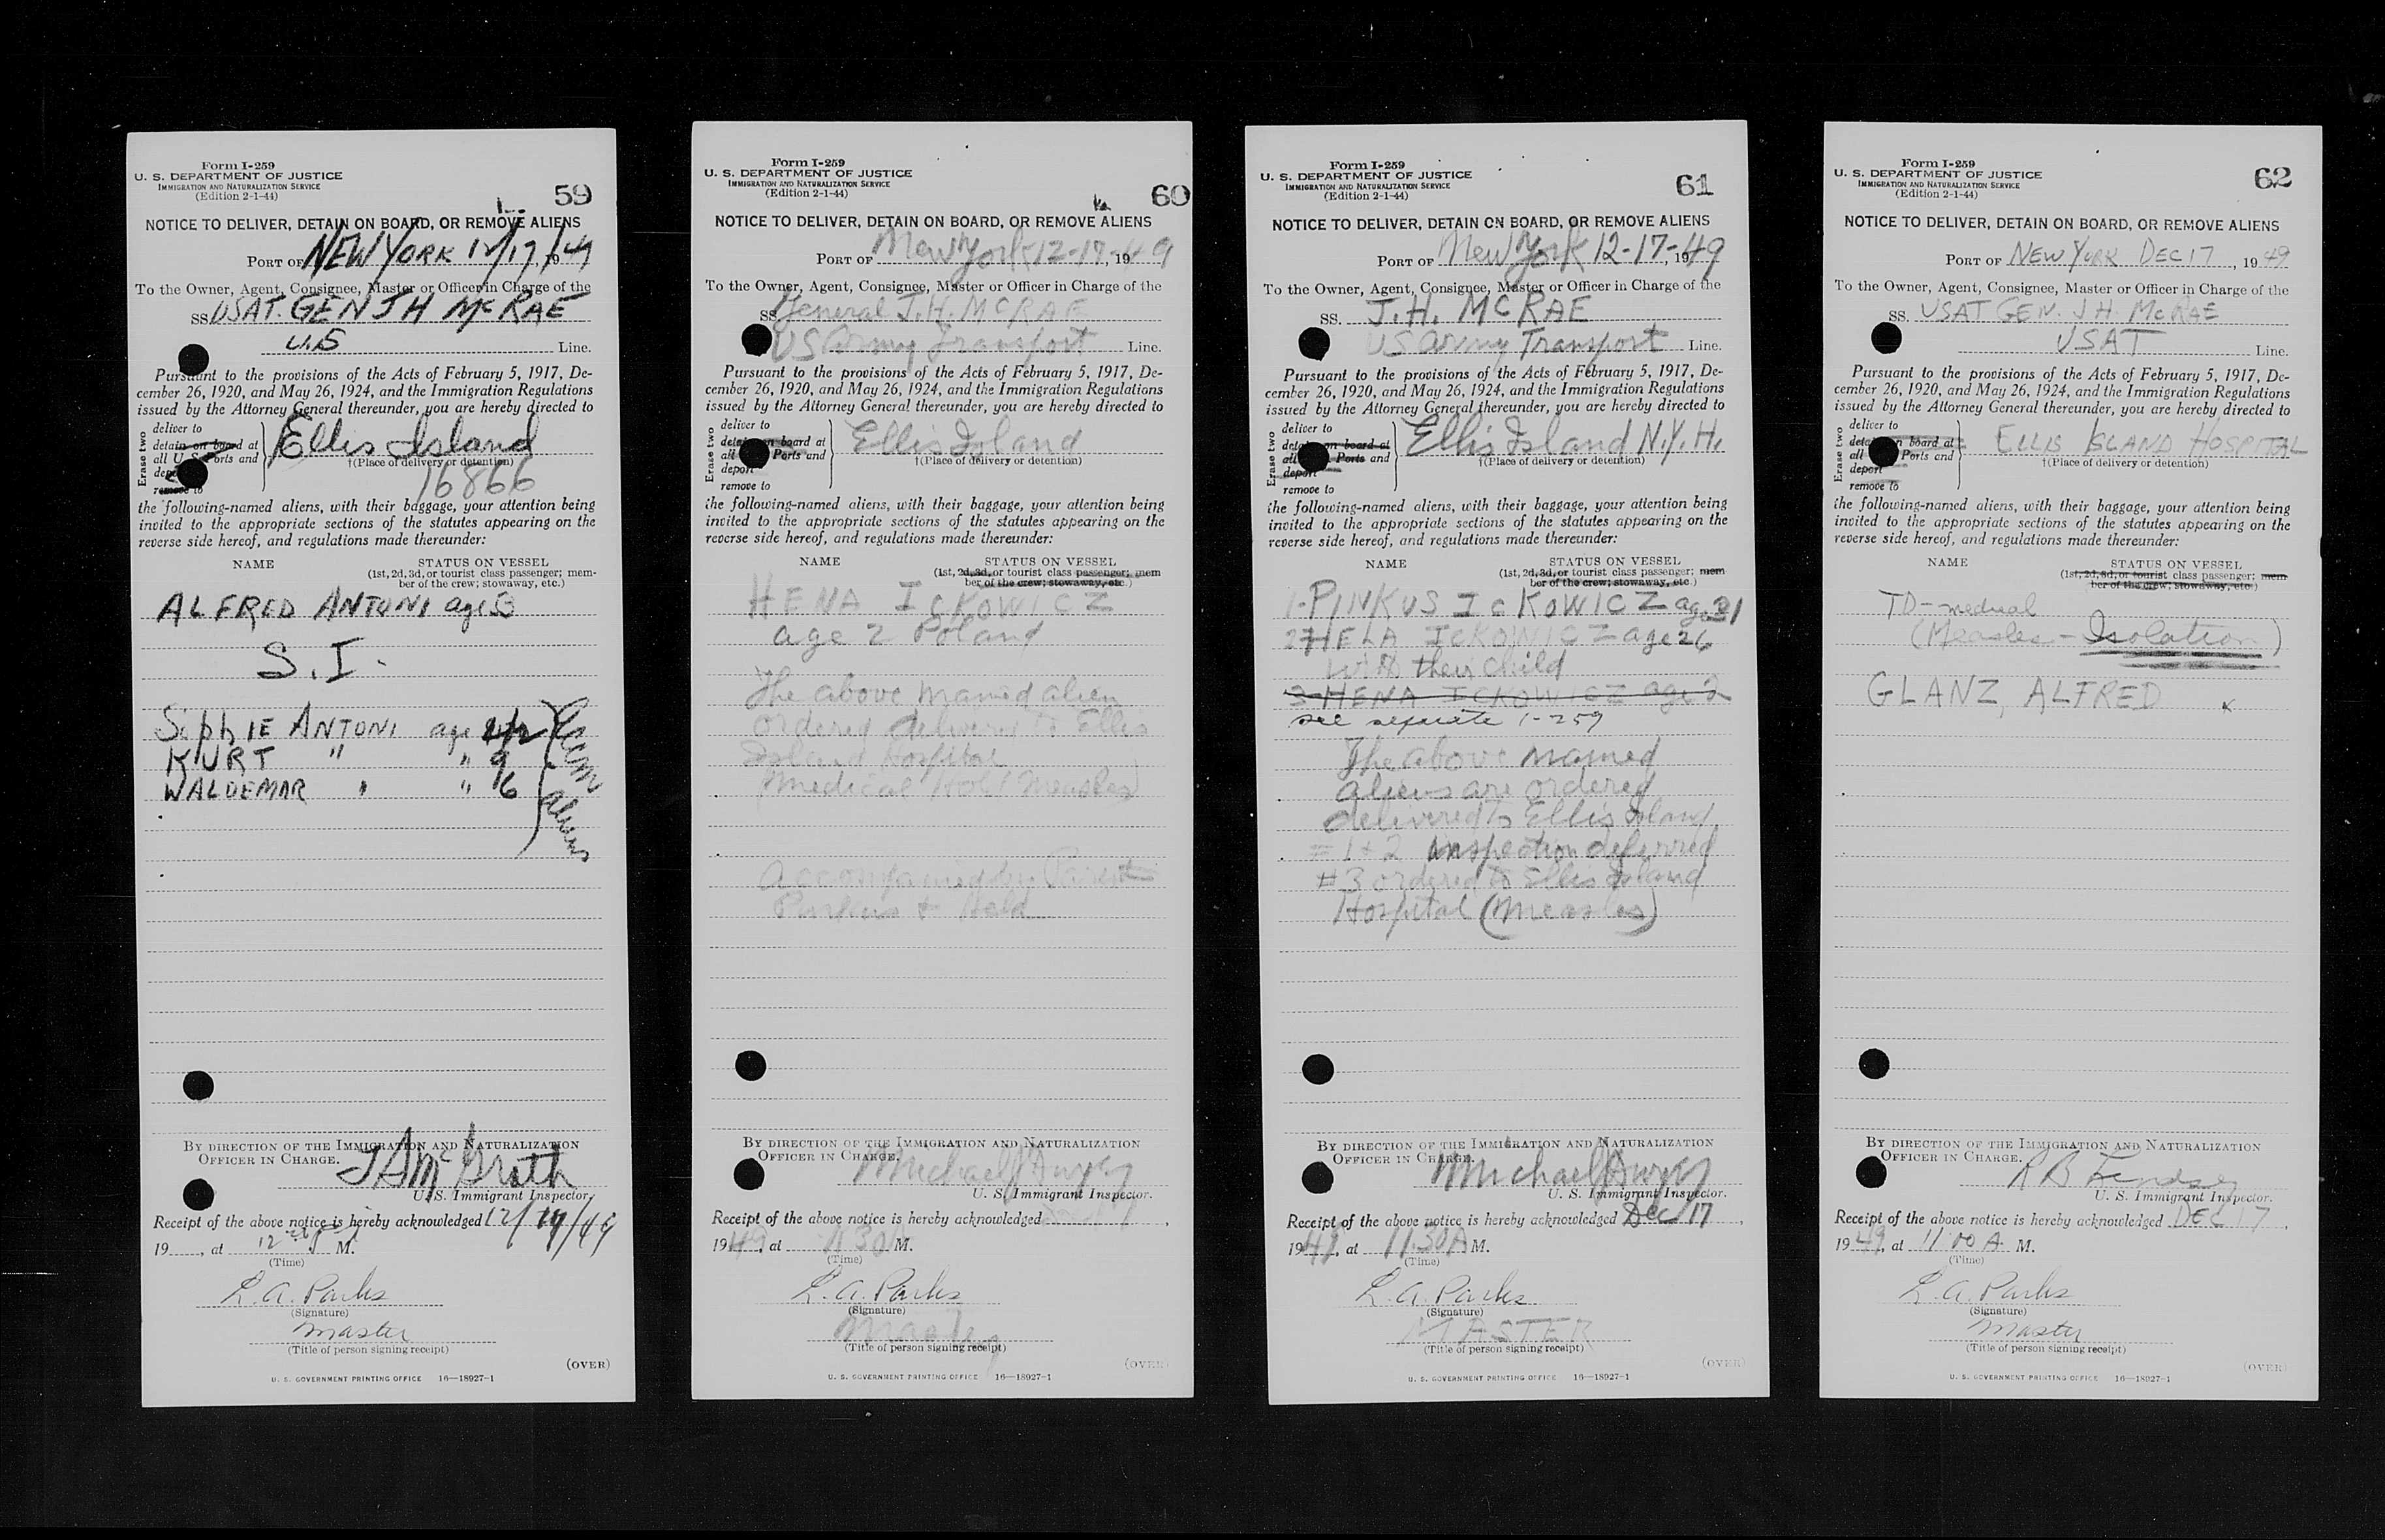 Form I-259
U. S. DEPARTMENT OF JUSTICE
IMMIGRATION AND NATURALIZATION SERVICE
(Edition 2-1-44)
59
NOTICE TO DELIVER, DETAIN ON BOARD, OR REMOVE ALIENS
PORT OF NEW YORK 12/17, 1949
To the Owner, Agent, Consignee, Master or Officer in Charge of the
SS USAT. GEN J H McRAE
U.S Line.
Pursuant to the provisions of the Acts of February 5, 1917, De-
cember 26, 1920, and May 26, 1924, and the Immigration Regulations
issued by the Attorney General thereunder, you are hereby directed to
Erase two
deliver to
detain on board at
all U. S. Ports and
deport
remove to
Ellis Island
†(Place of delivery or detention)
16866
the following-named aliens, with their baggage, your attention being
invited to the appropriate sections of the statutes appearing on the
reverse side hereof, and regulations made thereunder:
NAME STATUS ON VESSEL
(1st, 2d, 3d, or tourist class passenger; mem-
ber of the crew; stowaway, etc.)
ALFRED ANTONI age
S.I.
SophIE ANTONI age
KURT " " 9
WALDEMAR " " 16
accom aliens
BY DIRECTION OF THE IMMIGRATION AND NATURALIZATION
OFFICER IN CHARGE.
U. S. Immigrant Inspector.
Receipt of the above notice is hereby acknowledged 12/
19, at 12 M.
(Time)
L. A. Parks
(Signature)
Master
(Title of person signing receipt)
(OVER)
U. S. GOVERNMENT PRINTING OFFICE 16—18927-1
Form I-259
U. S. DEPARTMENT OF JUSTICE
IMMIGRATION AND NATURALIZATION SERVICE
(Edition 2-1-44)
60
NOTICE TO DELIVER, DETAIN ON BOARD, OR REMOVE ALIENS
PORT OF New York 12-17-, 1949
To the Owner, Agent, Consignee, Master or Officer in Charge of the
SS General J.H. MCRAE
US Army Transport Line.
Pursuant to the provisions of the Acts of February 5, 1917, De-
cember 26, 1920, and May 26, 1924, and the Immigration Regulations
issued by the Attorney General thereunder, you are hereby directed to
Erase two
deliver to
detain on board at
all Ports and
deport
remove to
Ellis Island
†(Place of delivery or detention)
the following-named aliens, with their baggage, your attention being
invited to the appropriate sections of the statutes appearing on the
reverse side hereof, and regulations made thereunder:
NAME STATUS ON VESSEL
(1st, 2d, 3d, or tourist class passenger; mem
ber of the crew; stowaway, etc.)
HENA ICKOWICZ
age 2 Poland
The above named alien
ordered delivered to Ellis
Island Hospital
(Medical Hold Measles)
Accompanied by Parents
Pinkus + Hela
BY DIRECTION OF THE IMMIGRATION AND NATURALIZATION
OFFICER IN CHARGE.
Michael
U. S. Immigrant Inspector.
Receipt of the above notice is hereby acknowledged
1949, at 1130A M.
(Time)
L. A. Parks
(Signature)
Master
(Title of person signing receipt)
(OVER)
U. S. GOVERNMENT PRINTING OFFICE 16—18927-1
Form I-259
U. S. DEPARTMENT OF JUSTICE
IMMIGRATION AND NATURALIZATION SERVICE
(Edition 2-1-44)
61
NOTICE TO DELIVER, DETAIN ON BOARD, OR REMOVE ALIENS
PORT OF New York 12-17-, 1949
To the Owner, Agent, Consignee, Master or Officer in Charge of the
SS. J.H. MCRAE
US Army Transport Line.
Pursuant to the provisions of the Acts of February 5, 1917, De-
cember 26, 1920, and May 26, 1924, and the Immigration Regulations
issued by the Attorney General thereunder, you are hereby directed to
Erase two
deliver to
detain on board at
all Ports and
deport
remove to
Ellis Island N.Y.H.
†(Place of delivery or detention)
the following-named aliens, with their baggage, your attention being
invited to the appropriate sections of the statutes appearing on the
reverse side hereof, and regulations made thereunder:
NAME STATUS ON VESSEL
(1st, 2d, 3d, or tourist class passenger; mem
ber of the crew; stowaway, etc.)
1-PINKUS ICKOWICZ age 31
2-HELA ICKOWICZ age 26
with their child
3-HENA ICKOWICZ age 2
see separate 1-259
The above named
aliens are ordered
delivered to Ellis Island
#1+2 inspection deferred
#3 ordered to Ellis Island
Hospital (Measles)
BY DIRECTION OF THE IMMIGRATION AND NATURALIZATION
OFFICER IN CHARGE.
Michael
U. S. Immigrant Inspector.
Receipt of the above notice is hereby acknowledged Dec 17,
1949, at 11.30A M.
(Time)
L. A. Parks
(Signature)
MASTER
(Title of person signing receipt)
(OVER)
U. S. GOVERNMENT PRINTING OFFICE 16—18927-1
Form I-259
U. S. DEPARTMENT OF JUSTICE
IMMIGRATION AND NATURALIZATION SERVICE
(Edition 2-1-44)
62
NOTICE TO DELIVER, DETAIN ON BOARD, OR REMOVE ALIENS
PORT OF NEW YORK DEC 17, 1949
To the Owner, Agent, Consignee, Master or Officer in Charge of the
SS. USAT GEN. J H. McRAE
USAT Line.
Pursuant to the provisions of the Acts of February 5, 1917, De-
cember 26, 1920, and May 26, 1924, and the Immigration Regulations
issued by the Attorney General thereunder, you are hereby directed to
Erase two
deliver to
detain on board at
all Ports and
deport
remove to
ELLIS ISLAND HOSPITAL
†(Place of delivery or detention)
the following-named aliens, with their baggage, your attention being
invited to the appropriate sections of the statutes appearing on the
reverse side hereof, and regulations made thereunder:
NAME STATUS ON VESSEL
(1st, 2d, 3d, or tourist class passenger; mem
ber of the crew; stowaway, etc.)
TD-medical
(Measles - Isolation)
GLANZ, ALFRED x
BY DIRECTION OF THE IMMIGRATION AND NATURALIZATION
OFFICER IN CHARGE.
R B
U. S. Immigrant Inspector.
Receipt of the above notice is hereby acknowledged DEC 17,
1949, at 11 00 A M.
(Time)
L. A. Parks
(Signature)
Master
(Title of person signing receipt)
(OVER)
U. S. GOVERNMENT PRINTING OFFICE 16—18927-1